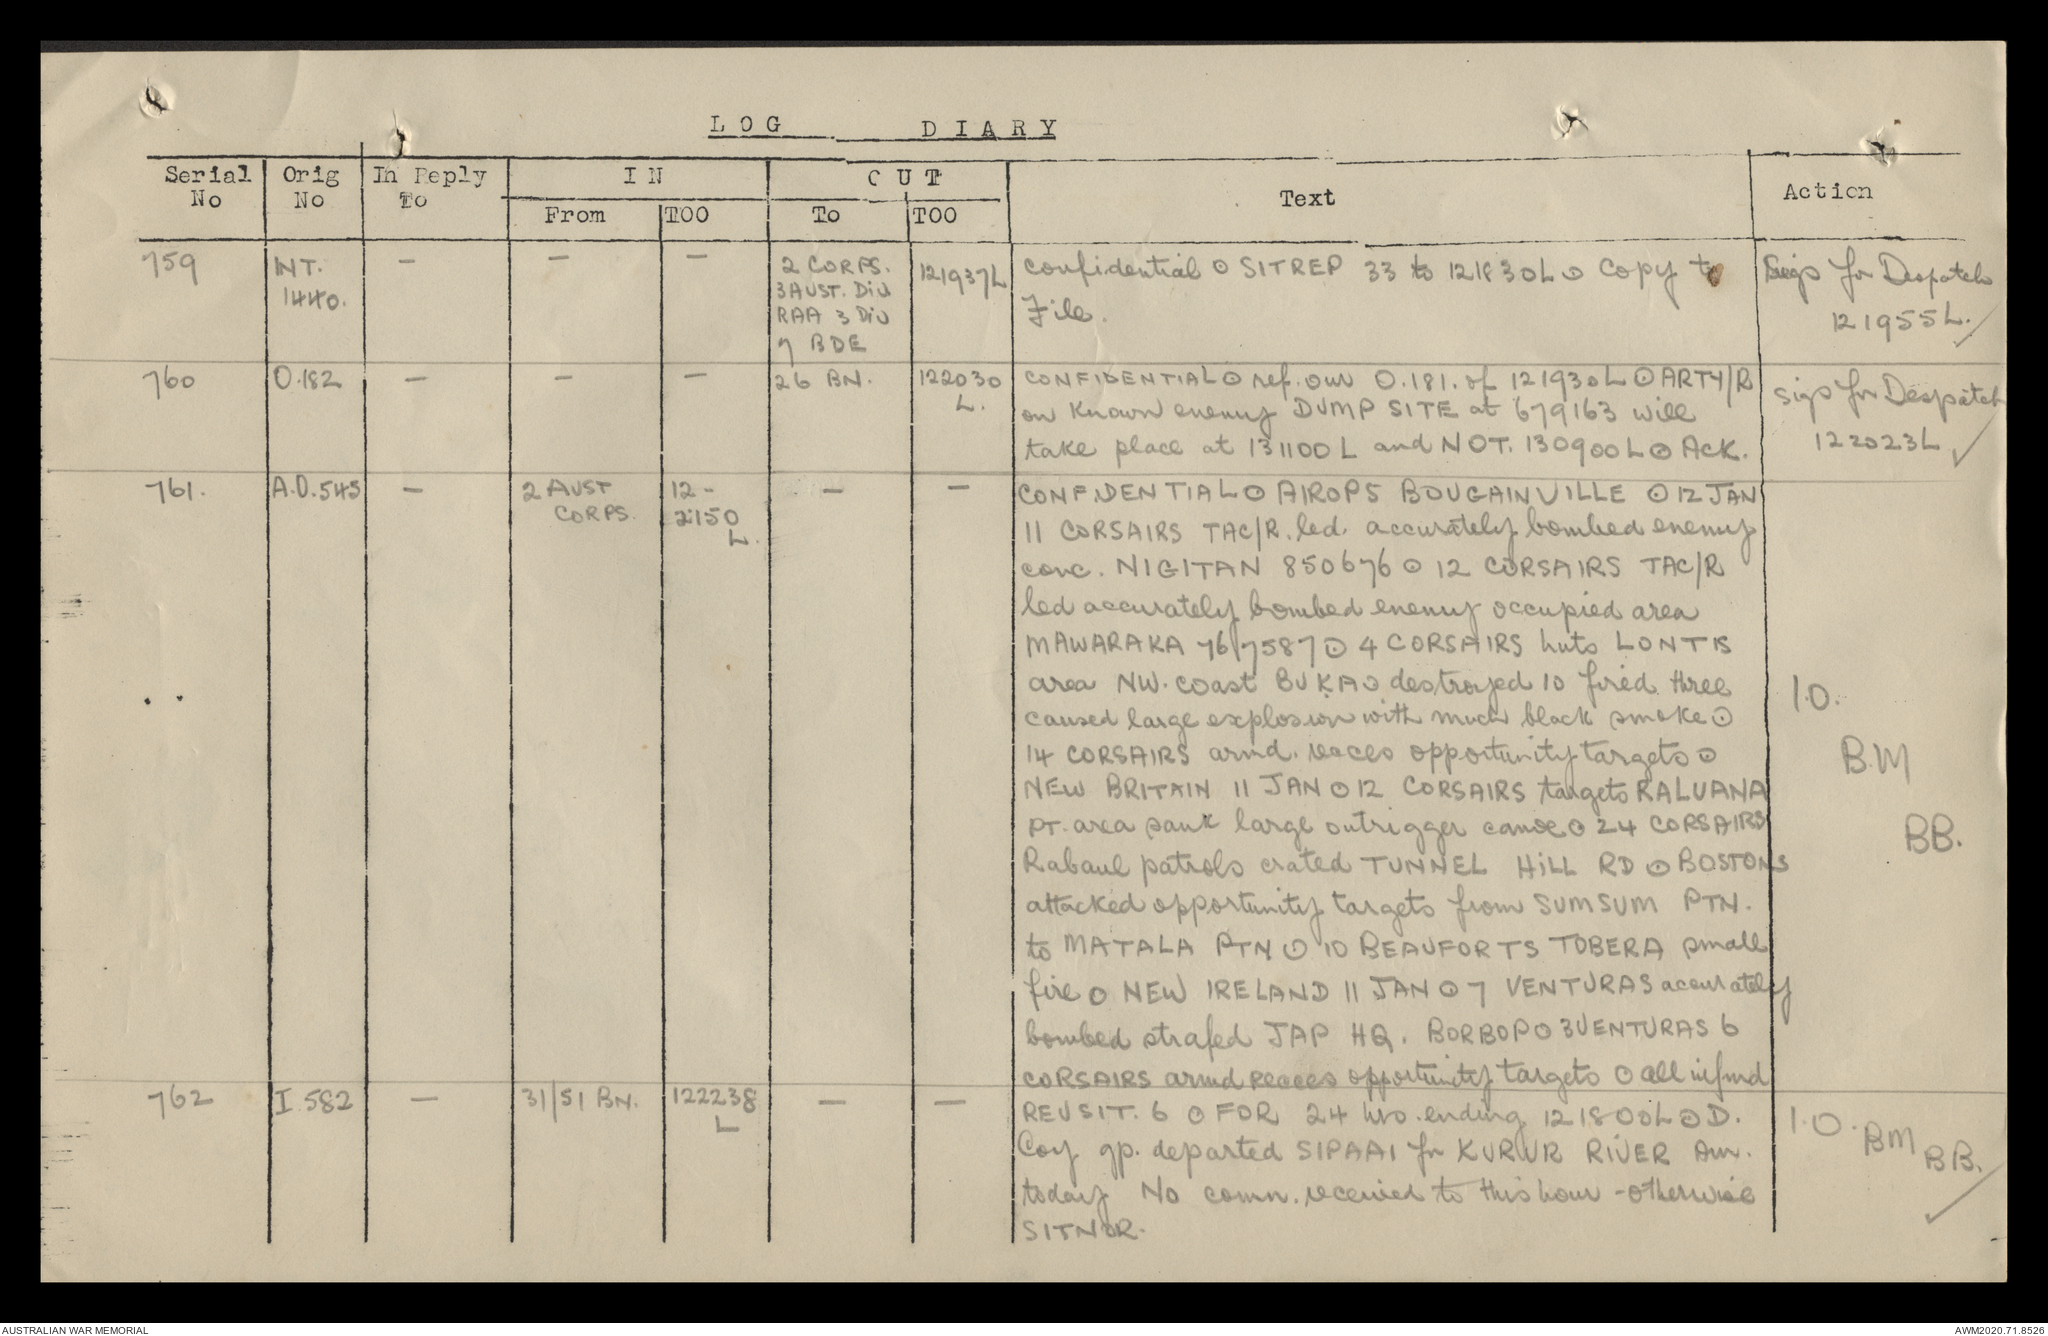 LOG DIARY
Serial No | Orig No | In Reply To | IN From | TOO | OUT To | TOO | Text | Action
759 | INT. 1440. | — | — | — | 2 CORPS. | 121937L | Confidential ⊙ SITREP 33 to 121830L ⊙ Copy to | Sigs for Despatch
3 AUST. Div | File. | 121955L. ✓
RAA 3 Div
7 BDE
760 | O.182 | — | — | — | 26 BN. | 122030 L. | CONFIDENTIAL ⊙ ref. our O.181. of 121930L ⊙ ARTY/R | Sigs for Despatch
on known enemy DUMP SITE at 679163 will
take place at 131100L and NOT. 130900L ⊙ ACK. | 122023L ✓
761. | A.O.545 | — | 2 AUST CORPS. | 12-2150 L. | — | — | CONFIDENTIAL ⊙ AIROPS BOUGAINVILLE ⊙ 12 JAN
11 CORSAIRS TAC/R. led accurately bombed enemy
conc. NIGITAN 850676 ⊙ 12 CORSAIRS TAC/R
led accurately bombed enemy occupied area
MAWARAKA 767587 ⊙ 4 CORSAIRS huts LONTIS
area NW. coast BUKA ⊙ destroyed 10 fired three | I.O.
caused large explosion with much black smoke ⊙
14 CORSAIRS armd. recces opportunity targets ⊙ | B.M
NEW BRITAIN 11 JAN ⊙ 12 CORSAIRS targets RALUANA
PT. area sank large outrigger canoe ⊙ 24 CORSAIRS | BB.
Rabaul patrols crated TUNNEL HILL RD ⊙ BOSTONS
attacked opportunity targets from SUMSUM PTN.
to MATALA PTN ⊙ 10 BEAUFORTS TOBERA small
fire ⊙ NEW IRELAND 11 JAN ⊙ 7 VENTURAS accurately
bombed strafed JAP HQ. BORBOP ⊙ 3 VENTURAS 6
CORSAIRS armd recces opportunity targets ⊙ all infmd
762 | I.582 | — | 31/51 BN. | 122238 L | — | — | REUSIT. 6 ⊙ FOR 24 hrs. ending 121800L ⊙ D. | I.O. BM BB. ✓
Coy gp. departed SIPAAI for KURWR RIVER Am.
today No comn. received to this hour - otherwise
SITNOR.
AUSTRALIAN WAR MEMORIAL
AWM2020.71.8526